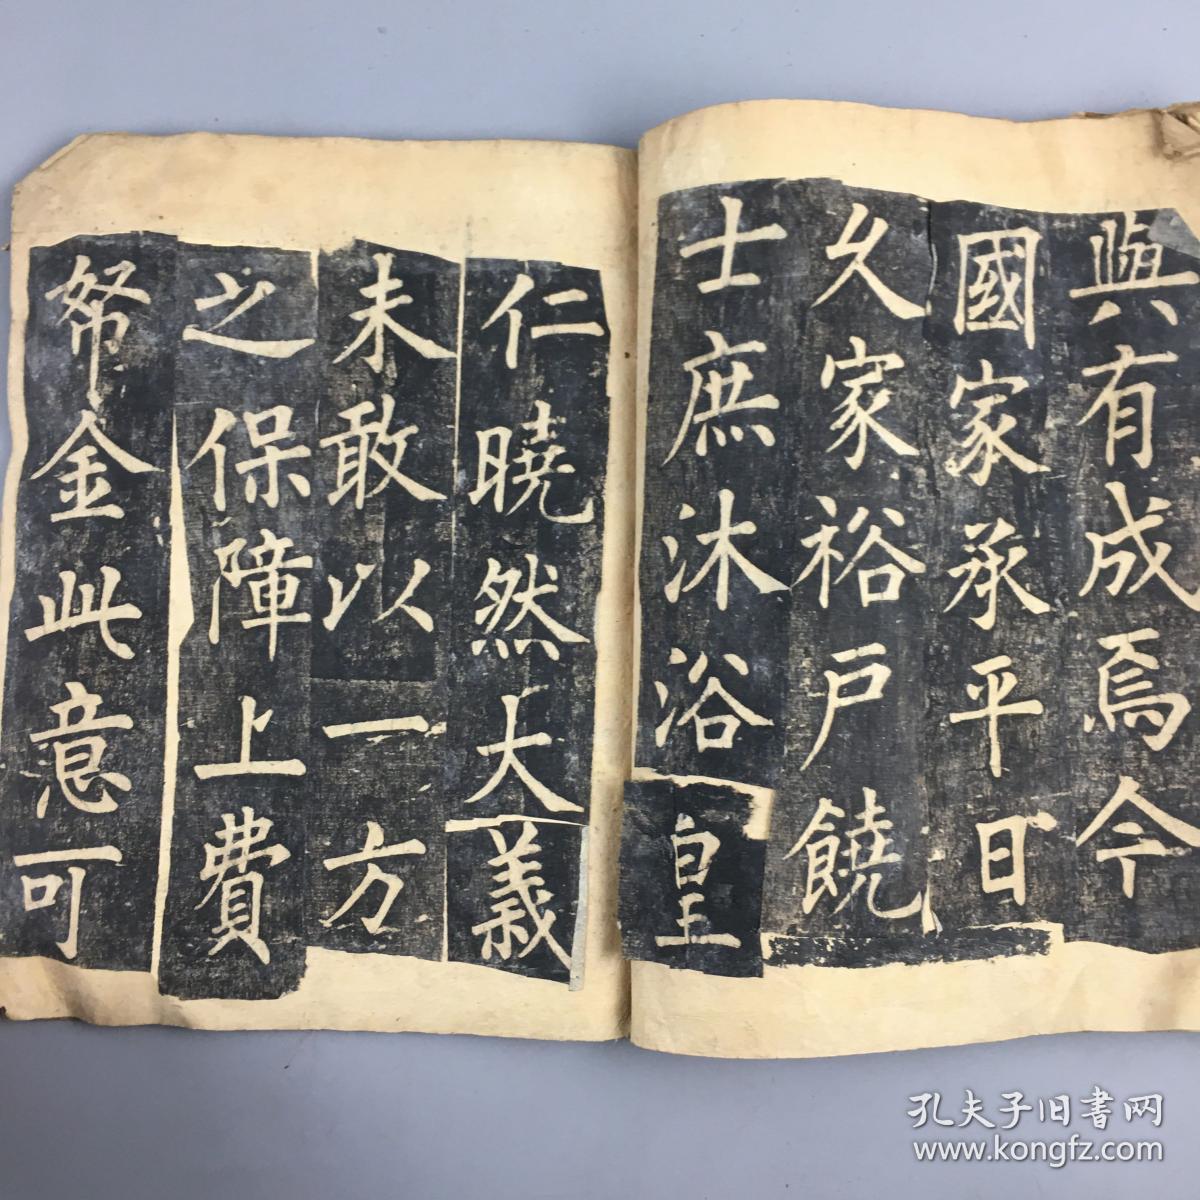 與有成焉今
國家承平日
久家裕戶饒
士庶沐浴皇
仁曉然大義
未敢以一方
之保障上費
帑金此意可
孔夫子旧书网
www.kongfz.com